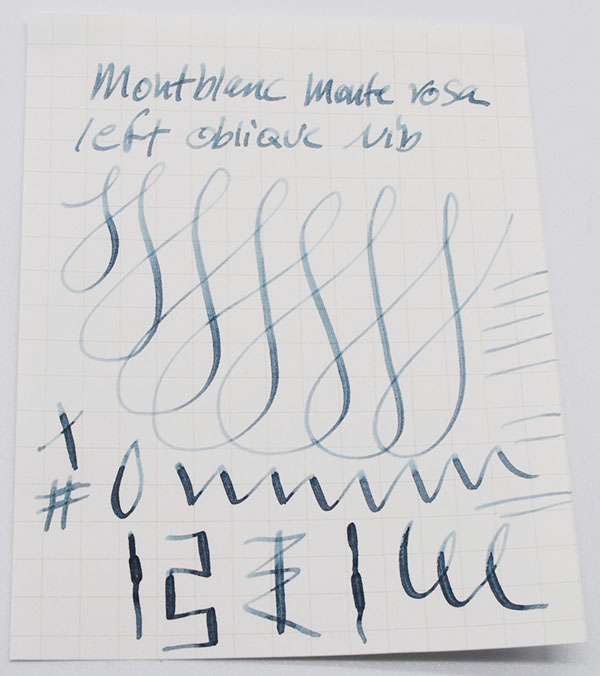 Montblanc monte rosa
left oblique nib
#